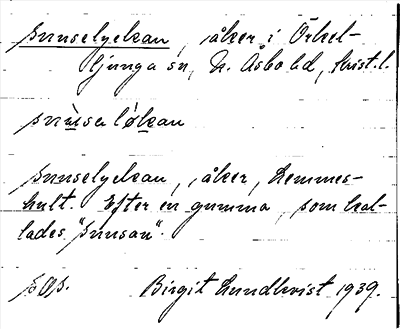 Snuselyckan, åker i Örkel-
ljunga sn, N. Åsbo hd, Krist. l.
snùsalo̍kan
Snuselyckan, åker, Lemmes-
hult. Efter en gumma, som kal-
lades "Snusan".
Birgit Lundkvist 1939.